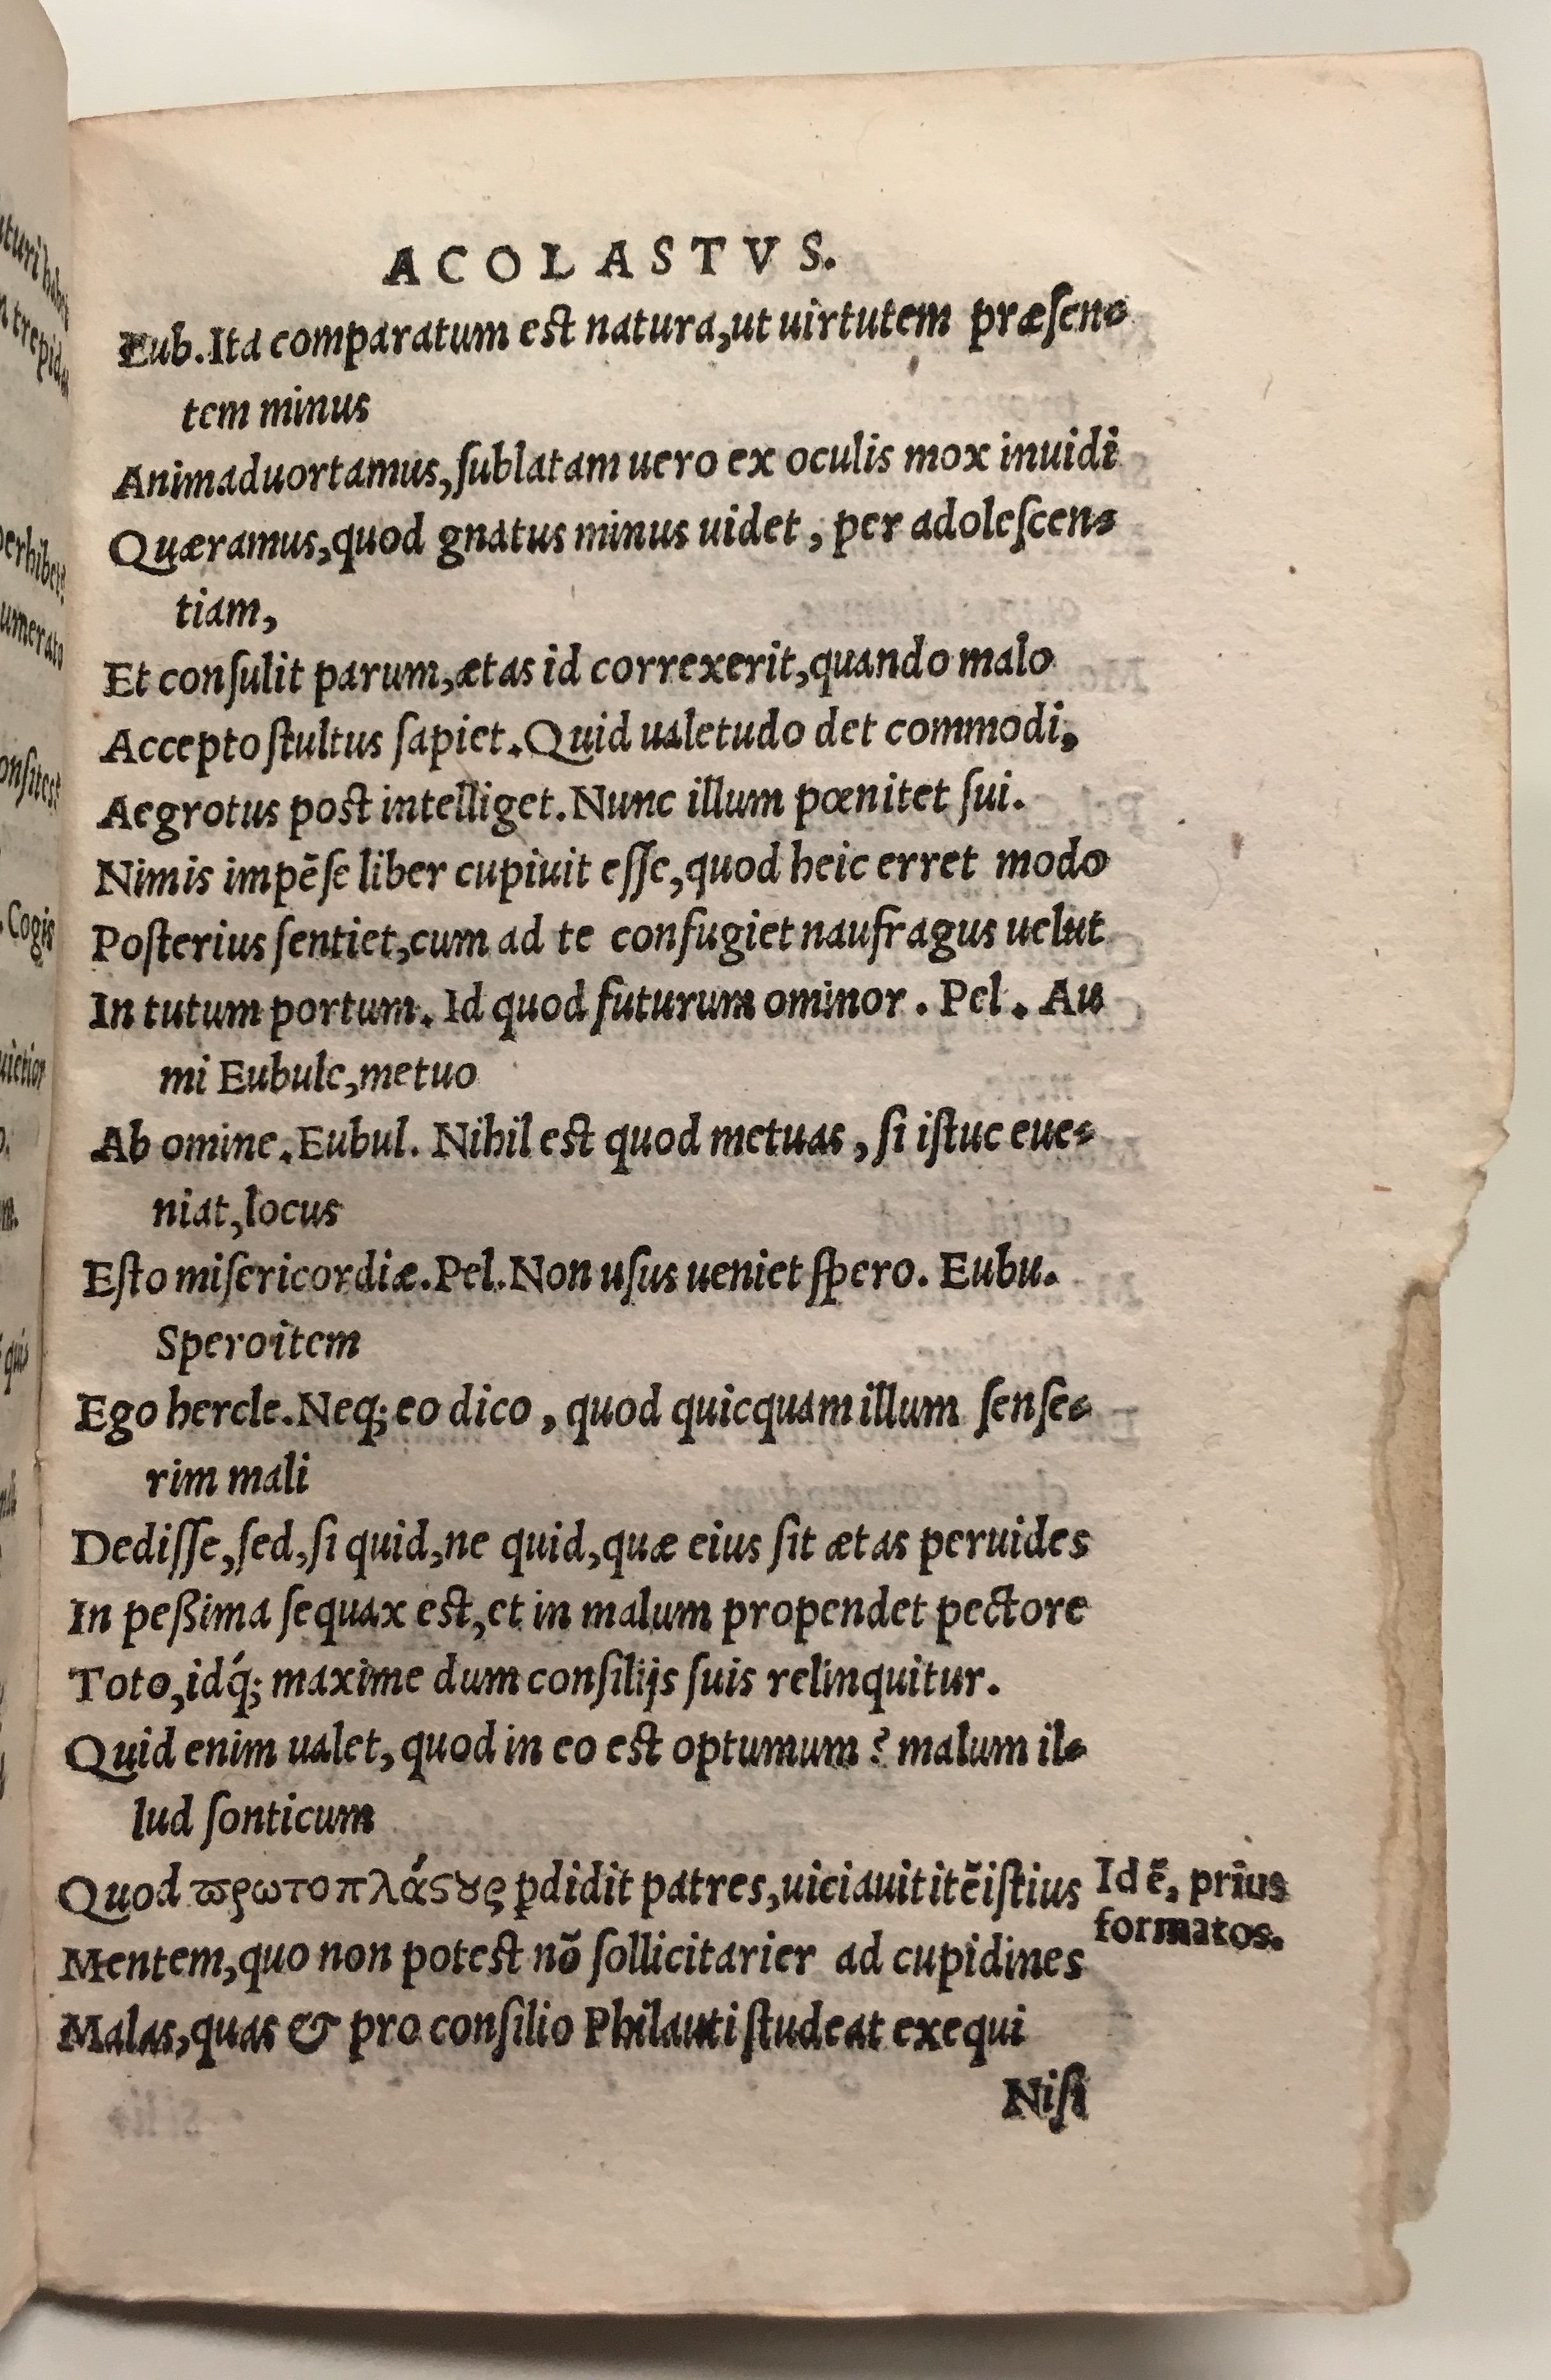 ACOLASTVS.
Eub. Ita comparatum est natura, ut uirtutem præſen-
tem minus
Animaduortamus, ſublatam uero ex oculis mox inuidi
Quæramus, quod gnatus minus uidet, per adoleſcen-
tiam,
Et conſulit parum, ætas id correxerit, quando malo
Accepto ſtultus ſapiet. Quid ualetudo det commodi,
Aegrotus post intelliget. Nunc illum pœnitet ſui.
Nimis impẽſe liber cupiuit eſſe, quod heic erret modo
Poſterius ſentiet, cum ad te confugiet naufragus uelut
In tutum portum. Id quod futurum ominor. Pel. Au
mi Eubule, metuo
Ab omine. Eubul. Nihil est quod metuas, ſi iſtuc eue-
niat, locus
Eſto miſericordiæ. Pel. Non uſus ueniet ſpero. Eubu.
Spero item
Ego hercle. Neq; eo dico, quod quicquam illum ſenſe-
rim mali
Dediſſe, ſed, ſi quid, ne quid, quæ eius ſit ætas peruides
In peßima ſequax est, et in malum propendet pectore
Toto, idq́; maxime dum conſilijs ſuis relinquitur.
Quid enim ualet, quod in eo est optumum? malum il-
lud ſonticum
Quod ϖρωτοπλάϛȣς ꝑdidit patres, uiciauit itẽ iſtius
Id ẽ, prius
formatos.
Mentem, quo non potest nõ ſollicitarier ad cupidines
Malas, quas & pro conſilio Philauti ſtudeat exequi
Niſi